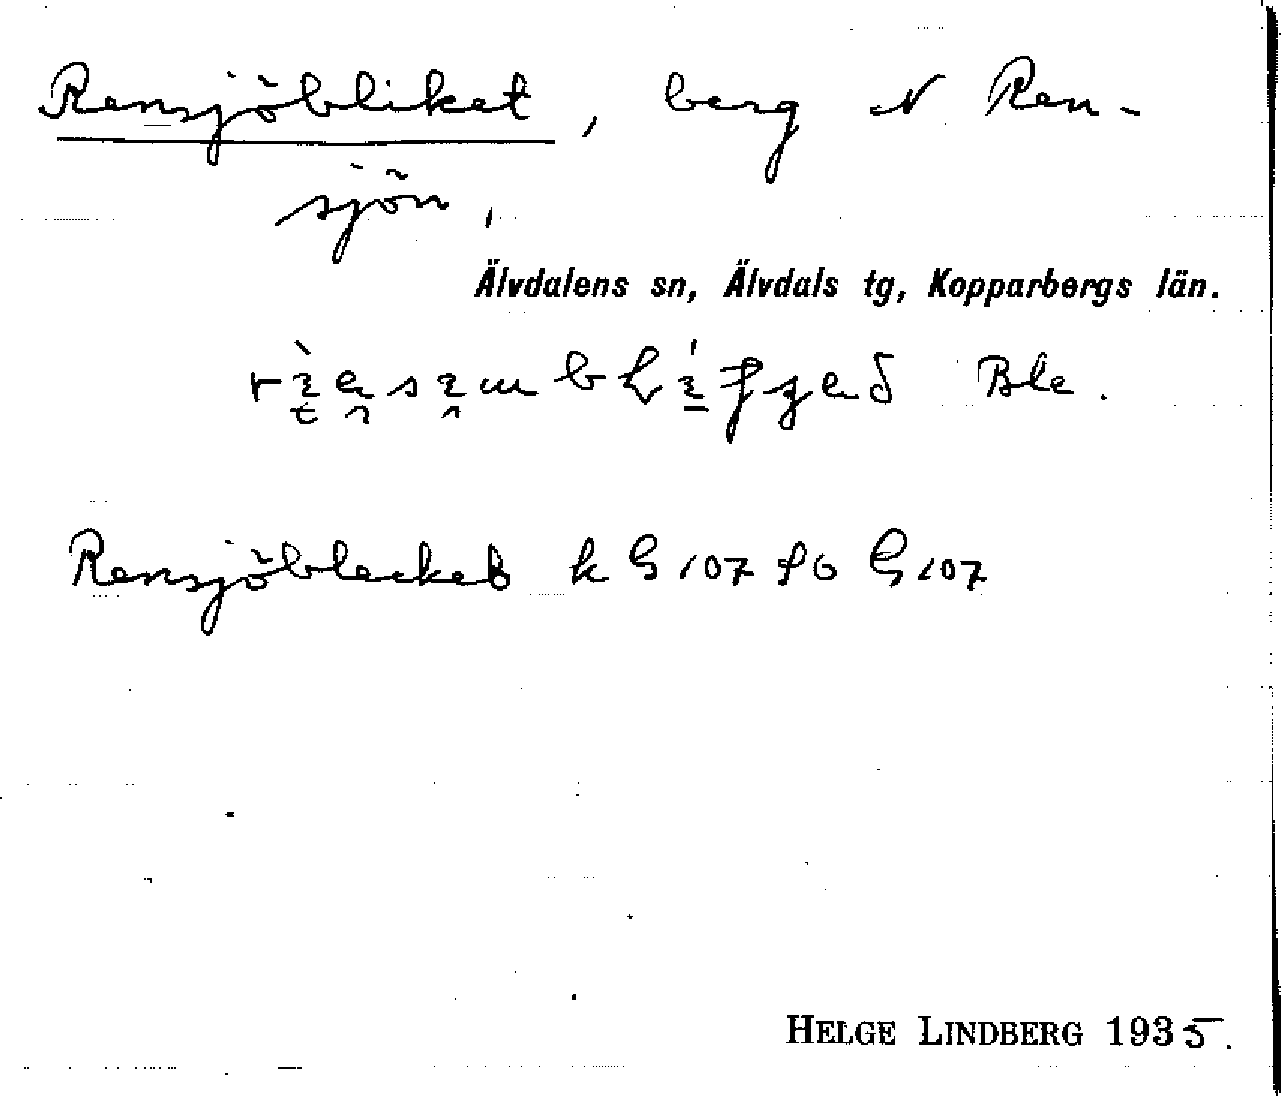 Rensjöbliket, berg N Ren-
sjön,
Älvdalens sn, Älvdals tg, Kopparbergs län.
Ble.
Rensjöblecket k G 107 fo G 107
HELGE LINDBERG 1935.